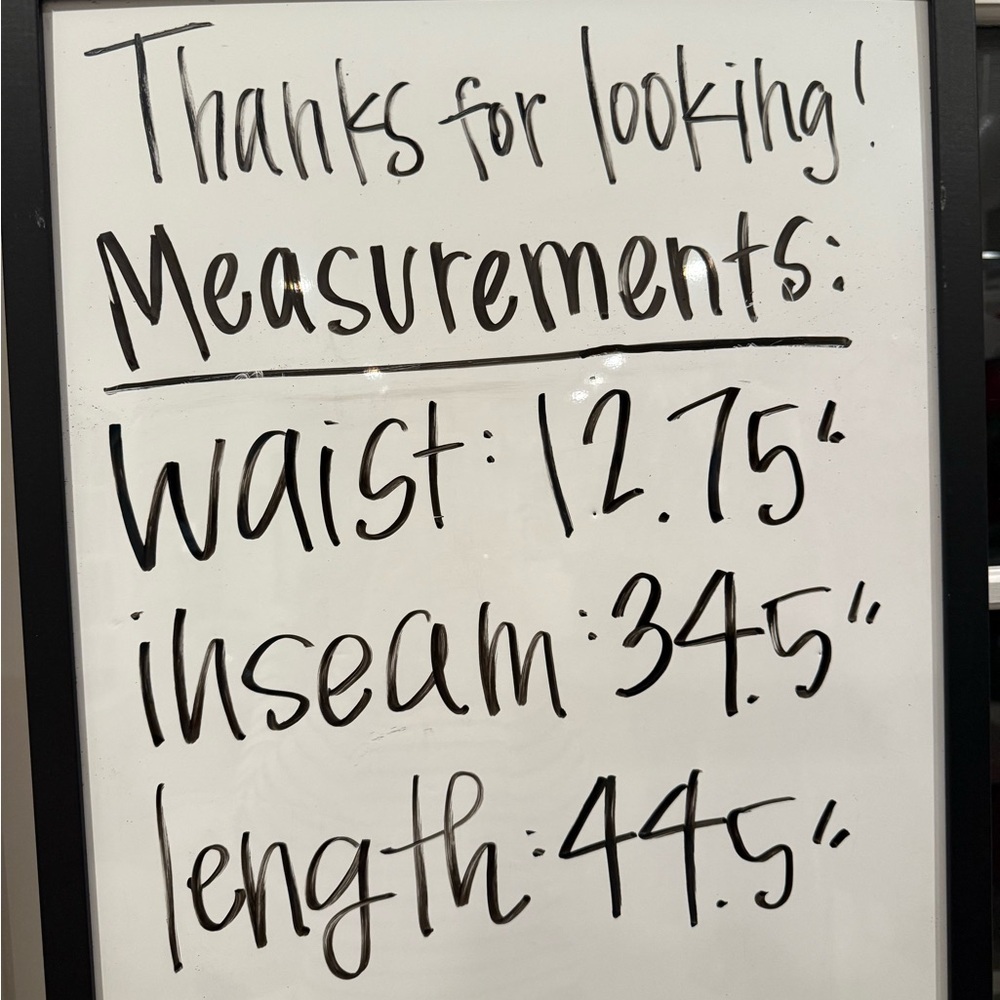 Thanks for looking!
Measurements:
Waist: 12.75"
inseam: 34.5"
length: 44.5"